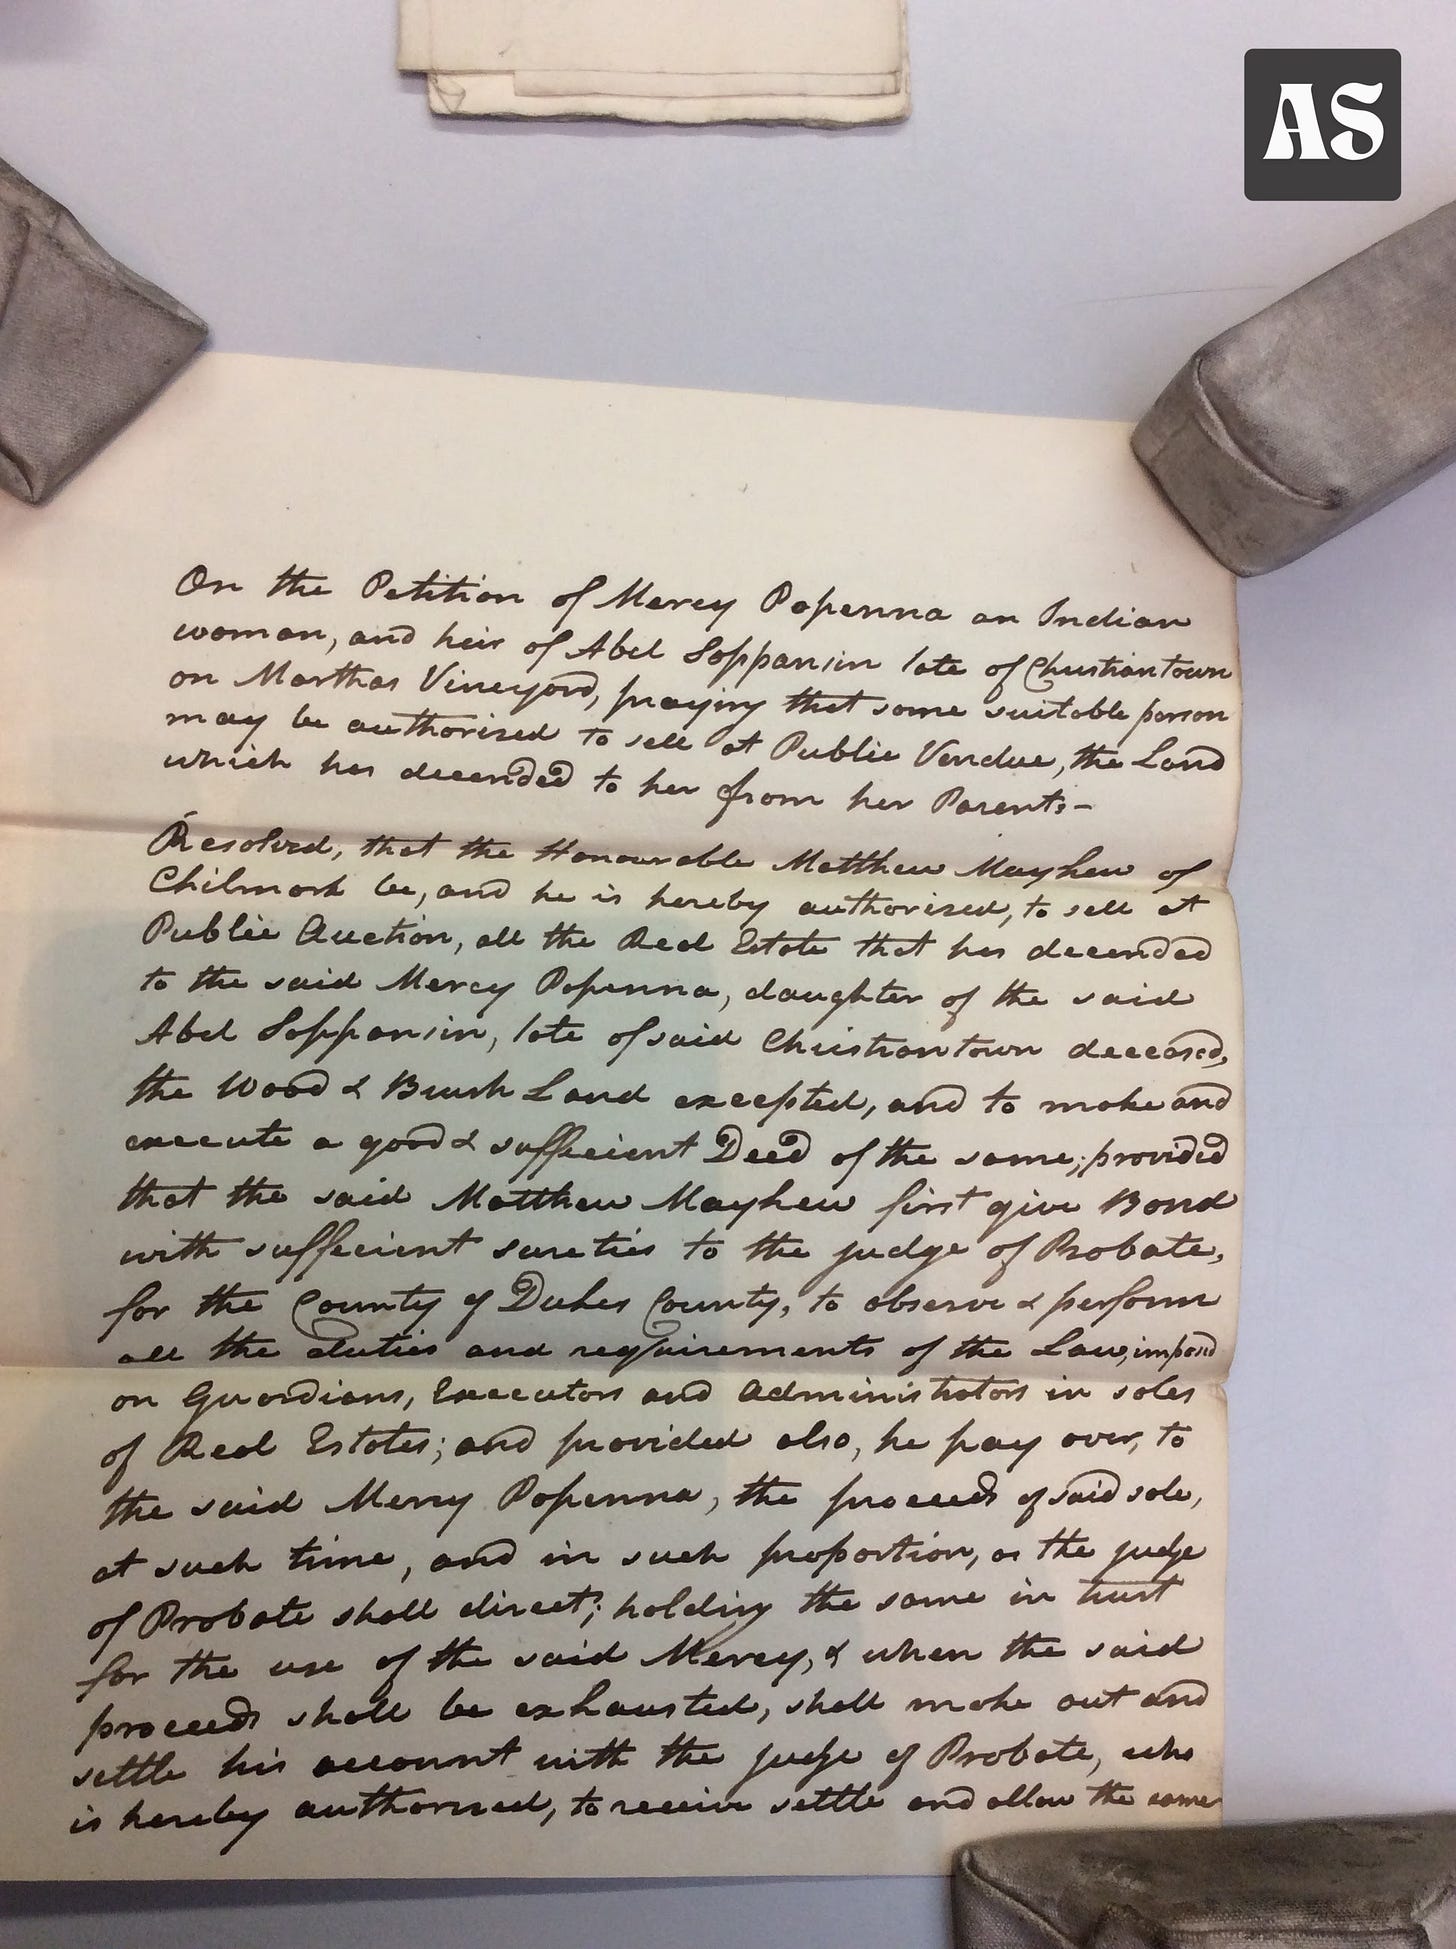 AS
On the Petition of Mercy Popenna an Indian
woman, and heir of Abel Soppansin late of Christiantown
on Marthas Vineyard, praying that some suitable person
may be authorised to sell at Public Vendue, the Land
which has decended to her from her Parents-
Resolved, that the Honourable Matthew Mayhew of
Chilmark be, and he is hereby authorised, to sell at
Public Auction, all the Real Estate that has decended
to the said Mercy Popenna, daughter of the said
Abel Soppansin, late of said Christiantown deceased,
the Wood & Brush Land excepted, and to make and
execute a good & sufficient Deed of the same; provided
that the said Matthew Mayhew first give Bond
with sufficient sureties to the judge of Probate,
for the County of Dukes County, to observe & perform
all the duties and requirements of the Law, imposed
on Guardians, Executors and Administrators in sales
of Real Estates; and provided also, he pay over, to
the said Mercy Popenna, the proceeds of said sale,
at such time, and in such proportion, as the judge
of Probate shall direct; holding the same in trust
for the use of the said Mercy, & when the said
proceeds shall be exhausted, shall make out and
settle his account with the judge of Probate, who
is hereby authorised, to receive settle and allow the same